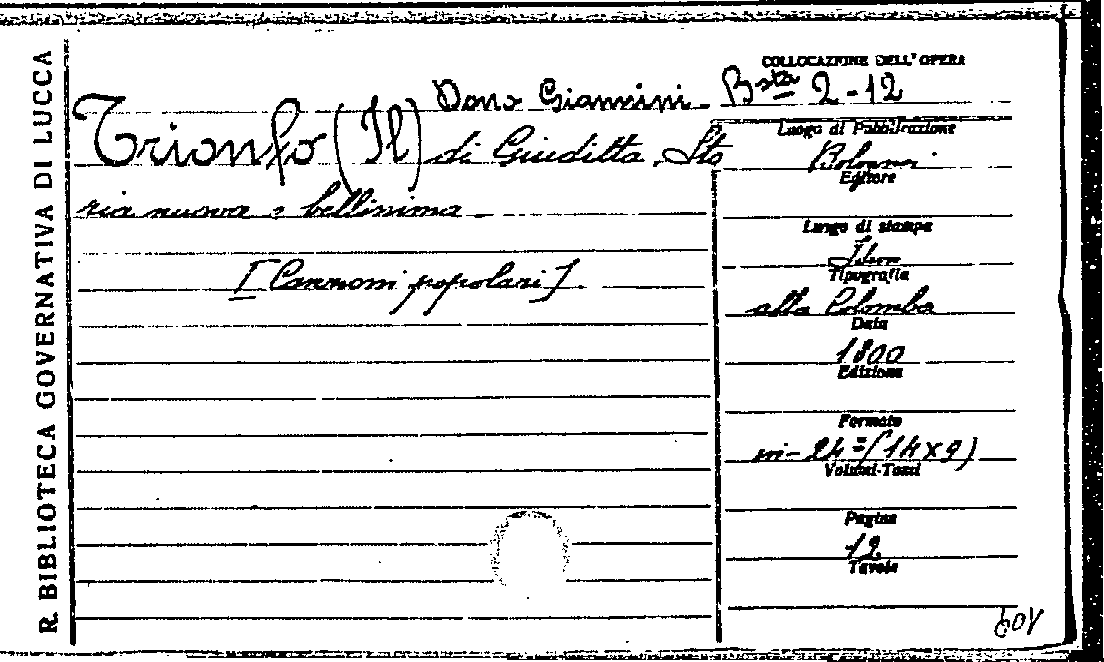 R. BIBLIOTECA GOVERNATIVA DI LUCCA
COLLOCAZIONE DELL'OPERA
Dono Giannini - Bsta 2-12
Trionfo (Il) di Giuditta. Sto
ria nuova e bellissima
[Canzoni popolari]
Luogo di Pubblicazione
Bologna
Editore
Luogo di stampa
Idem
Tipografia
alla Colomba
Data
1800
Edizione
Formato
in-24º (14x9)
Volumi-Tomi
Pagine
12
Tavole